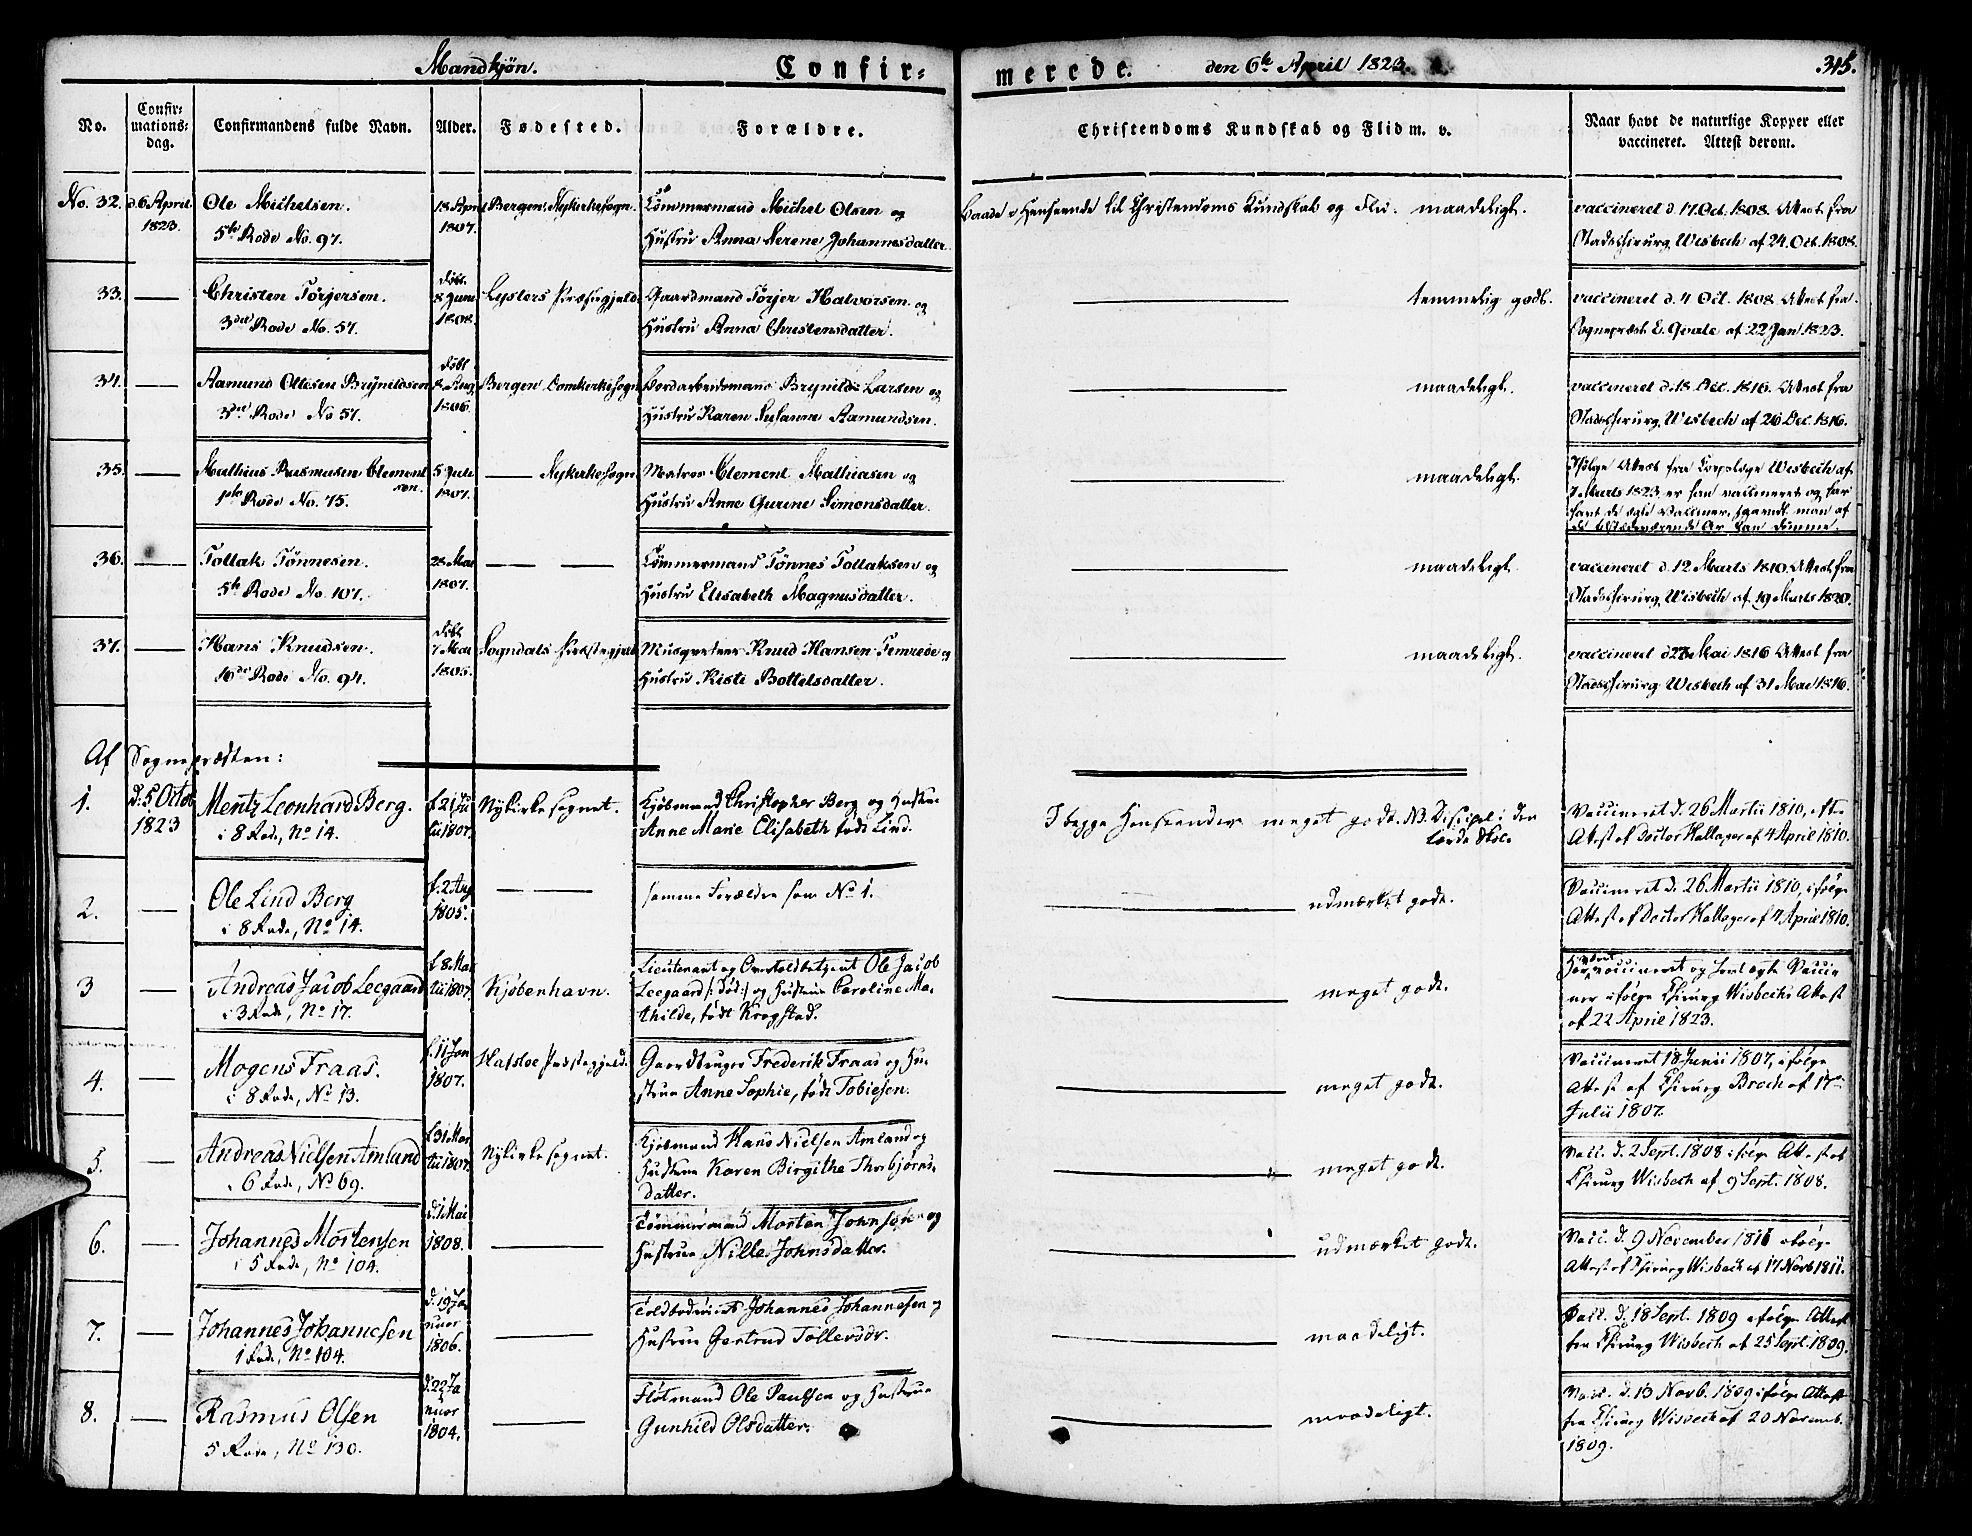 Mandkjøn. Confir- merede. den 6te April 1823. 315.
No. Confir-mations-dag. Confirmandens fulde Navn. Alder. Fødested. Forældre. Christendoms Kundskab og Flid m. v. Naar havt de naturlige Kopper eller vaccineret. Attest derom.
No. 32. d. 6 April Ole Michelsen. 18 April Bergens Nykirkesogn. Tømmermand Michel Olsen og Baade i Henseende til Christendoms Kundskab og Flid. maadeligt. vaccineret d. 17 Oct. 1808. Attest fra
1823. 5te Rode No. 97. 1807. Hustru Anna Serene Johannesdatter. Stadschirurg Wisbech af 24. Oct. 1808.
33. Christen Törjersen. døbt 8 Juni Lysters Præstegjeld Gaardmand Törjer Halvorsen og temmelig godt. vaccineret d. 4 Oct. 1808. Attest fra
3die Rode No. 57. 1808. Hustru Anna Christensdatter. Sognepræst E. Qvale af 22 Jan. 1823.
34. Aamund Ottesen Brynildsen døbt 8 Aug Bergen Domkirkesogn Jordarbeidsmand Brynild Larsen og maadeligt. vaccineret d. 18. Dec. 1816. Attest fra
3die Rode No 57. 1806. Hustru Karen Susanna Aamundsen. Stadschirurg Wisbech af 26 Dec. 1816.
35. Mathias Rasmusen Clement 5 Juli Nykirkesogn Matros Clement Mathiasen og maadeligt. Ifølge Attest fra Wisbech af
sen. 7 Marts 1823 er han vaccineret og har
1ste Rode No. 75. 1807. Hustru Anne Gurine Simonsdatter. havt de ægte Vacciner, man af
de tilstedeværende Ar kan dømme.
36. Tollak Tönnesen. 28 Mai Tømmermand Tönnes Tollaksen og maadeligt. vaccineret d. 12 Marts 1810. Attest fra
5te Rode No. 107. 1807. Hustru Elisabeth Magnusdatter. Stadschirurg Wisbech af 19 Marts 1820.
37. Hans Knudsen. døbt 7 Mai Sogndals Præstegjeld Musqveteer Knud Hansen og maadeligt. vaccineret d. 23 Mai 1816 Attest fra
No. 94. 1805. Hustru Kisti Bottelsdatter. Stadschirurg Wisbech af 31 Mai 1816.
Af Sognepræsten:
1. d. 5 Octob Mentz Leonhard Berg. f. 21 Ju Nykirkesognet. Kjøbmand Christopher Berg og Hustrue I begge Henseender meget godt. NB. Discipel i den Vaccineret d. 26 Martii 1810,
1823 i 8 Rode, No 14. lii 1807. Anne Marie Elisabeth født Lind. lærde Skole Attest af Doctor Hallager af 4 April 1810.
2. Ole Lind Berg f. 2 Aug samme Forældre som No 1. udmærket godt. Vaccineret d. 26 Martii 1810, ifølge
i 8 Rode, No 14. 1805. Attest af Doctor Hallager af 4 April 1810.
3 Andreas Jacob Leegaard f. 8 Mar Kjøbenhavn. Lieutenant og Overtoldbetjent Ole Jacob meget godt. vaccineret og havt ægte Vacci
i 3 Rode, No 17. tii 1807. Leegaard /: død:/ og Hustrue Caroline Ma- ner ifølge Chirurg Wisbechs Attest
thilde, født Krogstad. af 22 April 1823.
4. Mogens Fraas. f. 11 Jan Hafsloe Præstegjeld. Gaardbruger Frederik Fraas og Hu- meget godt. Vaccineret 18 Junii 1807, ifølge
i 8 Rode, No 13. 1807. strue Anne Sophie, født Tobiesen. Attest af Chirurg Broch af 17
Julii 1807.
5. Andreas Nielsen Amland f. 31 Mar Nykirkesognet. Kjøbmand Hans Nielsen Amland og meget godt. Vacc. d. 2 Sept. 1808 ifølge Attest af
i 6 Rode, No 69. tii 1807. Hustrue Karen Birgithe Thorbjørns Chirurg Wisbech af 9 Sept. 1808.
datter.
6. Johannes Mortensen d. 1 Mai Tømmermand Morten Johnsen og udmærket godt. Vacc. d. 9 November 1811 ifølge
i 5 Rode, No 104. 1808. Hustrue Nille Johnsdatter. Attest af Chirurg Wisbech af 17 Novb 1811.
7. Johannes Johannesen d. 19 Ja Toldbetient Johannes Johannesen og maadeligt. Vacc. d. 18 Sept. 1809 ifølge Attest
1 Rode, No 104. nuar 1806. Hustrue Gertrud Tollevsdr. fra Chirurg Wisbech af 25 Sept. 1809.
8. Rasmus Olsen d. 22 Ja Fløtmand Ole Paulsen og Hustrue maadeligt. Vacc. d. 13 Novb. 1809 ifølge Attest
5 Rode, No 130. nuar 1804. Gunhild Olsdatter. fra Chirurg Wisbech af 20 Novemb.
1809.